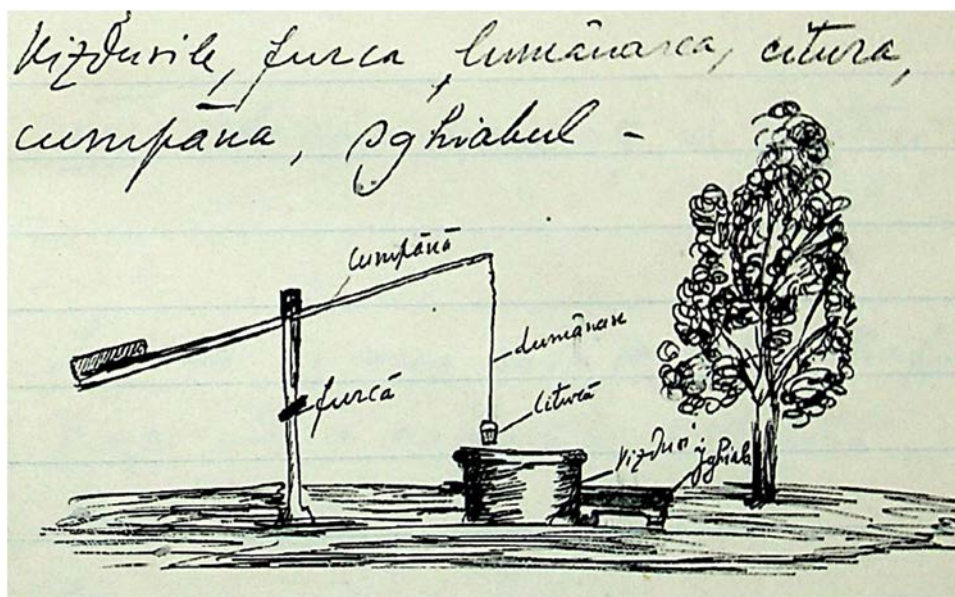 Vizdusile, furca, lumânarea, citura,
cumpăna, sghiabul -
cumpănă
lumânare
furcă
citură
vizdusi
jghiab